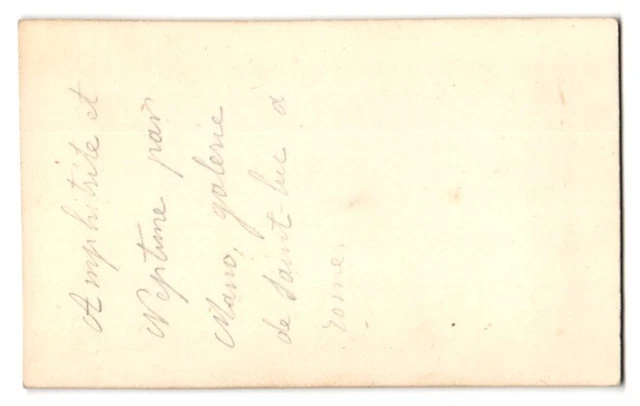 Amphitrite et
Neptune par
Mano, galerie
de Saint-luc a
rome.